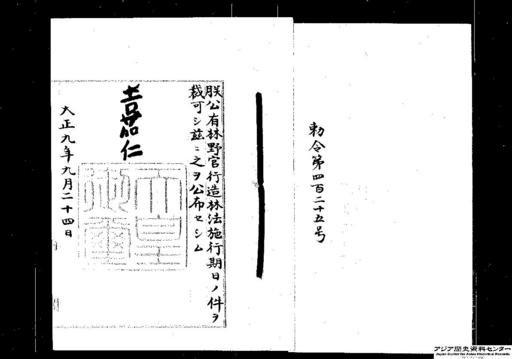 勅令第四百二十五号
朕公有林野官行造林法施行期日ノ件ヲ
裁可シ茲ニ之ヲ公布セシム
嘉仁
天皇御璽
大正九年九月二十四日
アジア歴史資料センター
Japan Center for Asian Historical Records